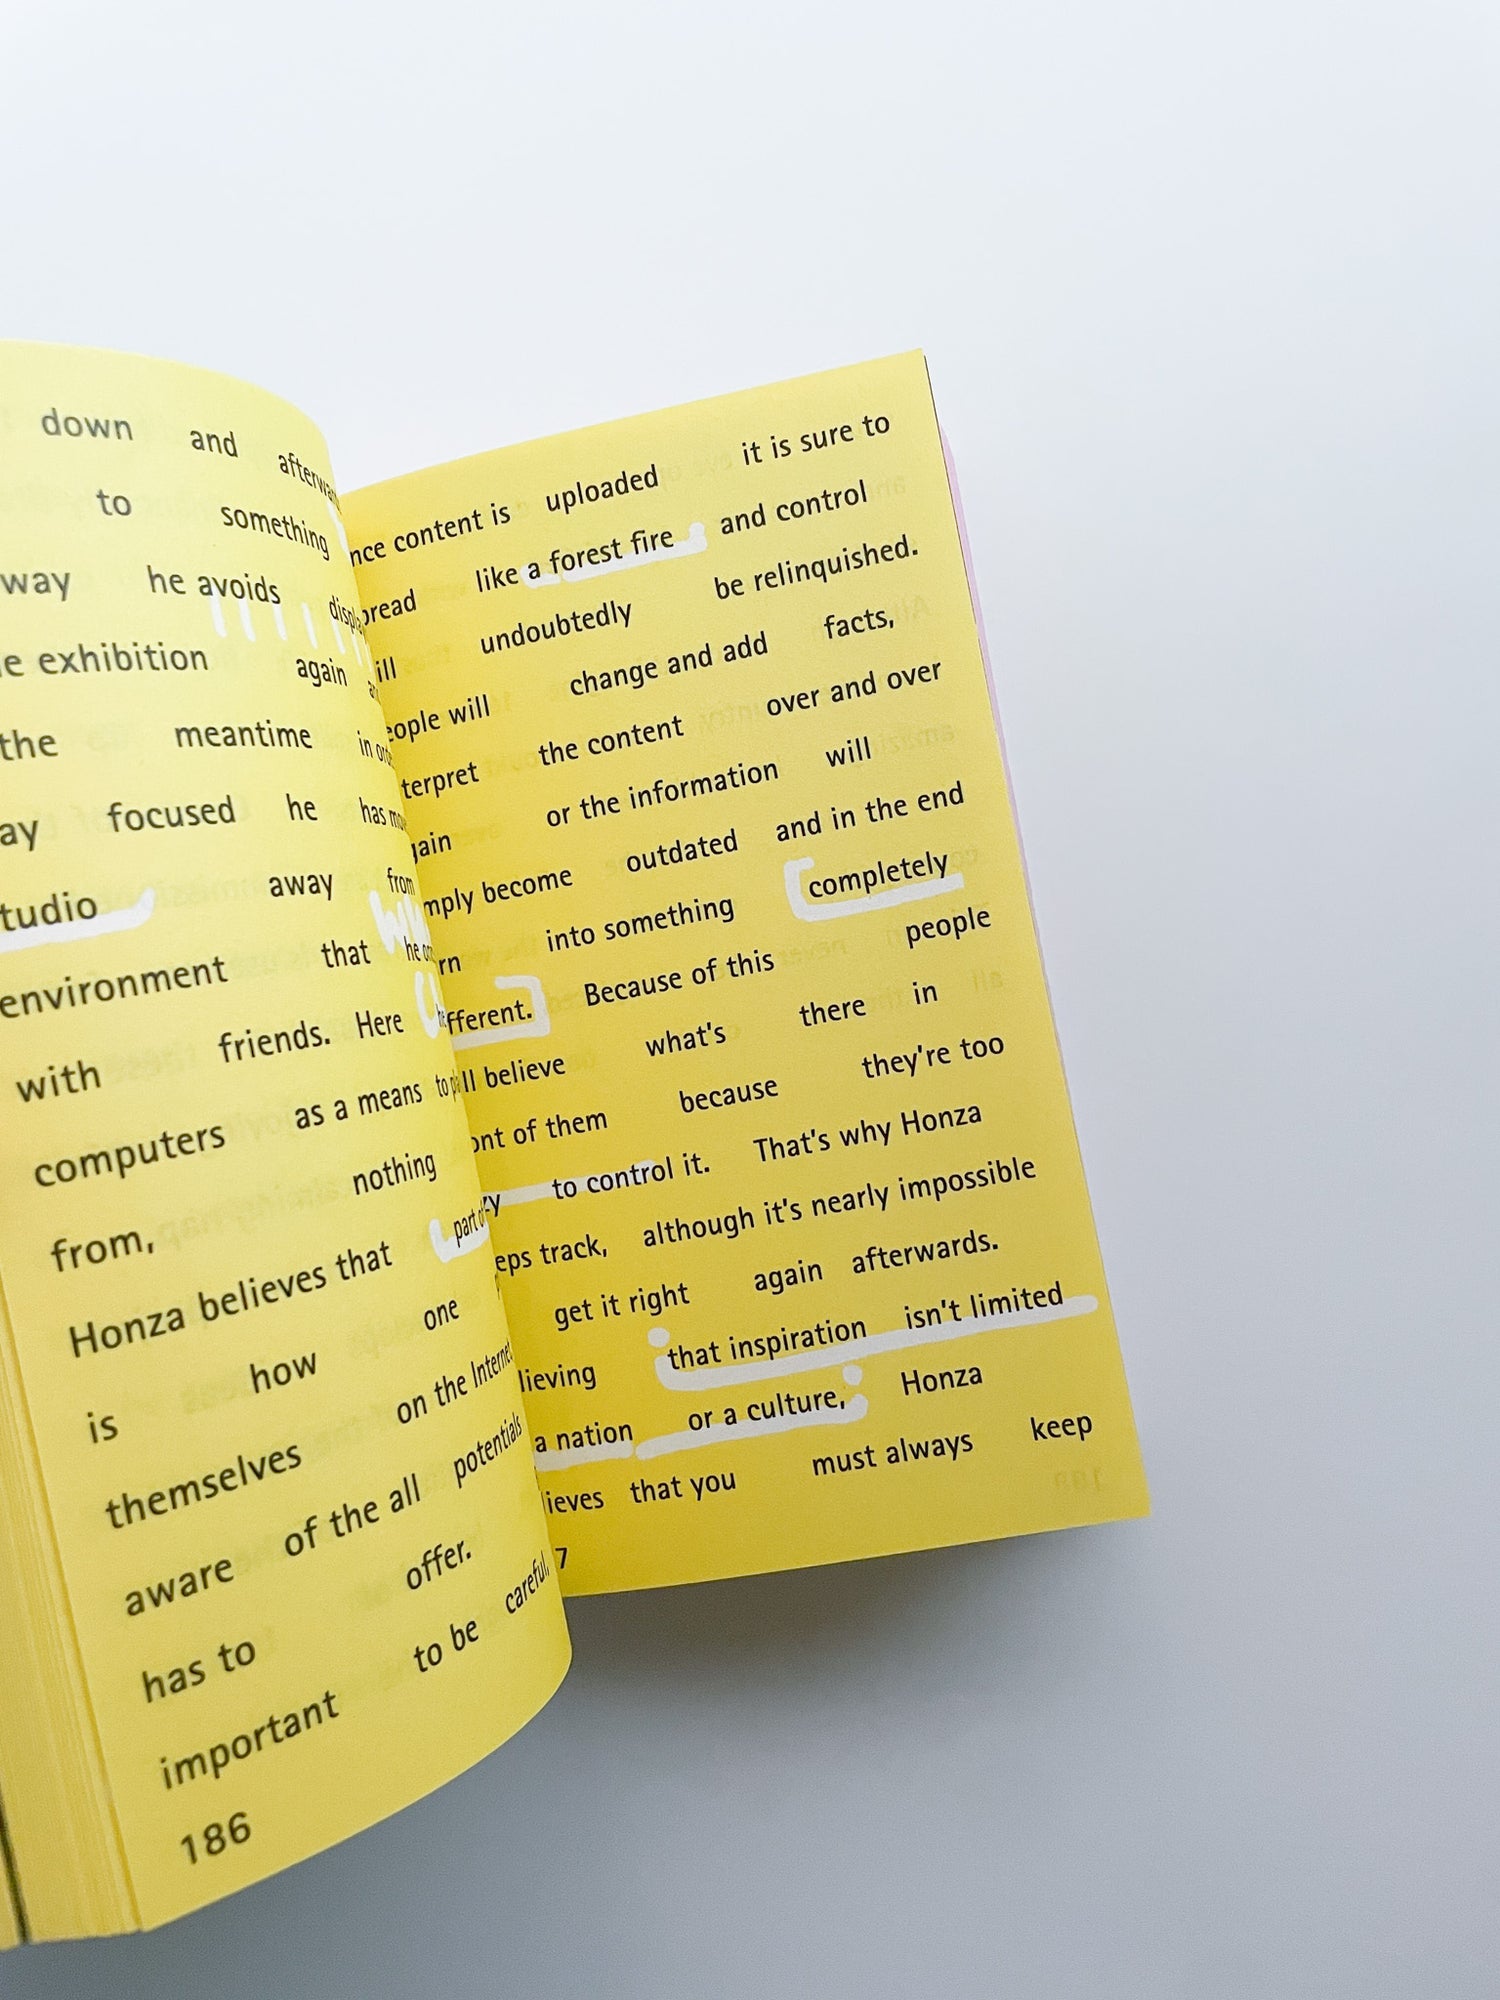 down and
to something
way he avoids
exhibition again
the meantime in
focused he has
away from
environment that he
with friends. Here
computers as a means to
from, nothing
Honza believes that part of
is how one
themselves on the Internet
aware of the all potentials
has to offer.
important to be careful,
186
content is uploaded it is sure to
like a forest fire and control
undoubtedly be relinquished.
will change and add facts,
the content over and over
or the information will
become outdated and in the end
into something completely
Because of this people
believe what's there in
of them because they're too
to control it. That's why Honza
track, although it's nearly impossible
get it right again afterwards.
that inspiration isn't limited
a nation or a culture, Honza
that you must always keep
7